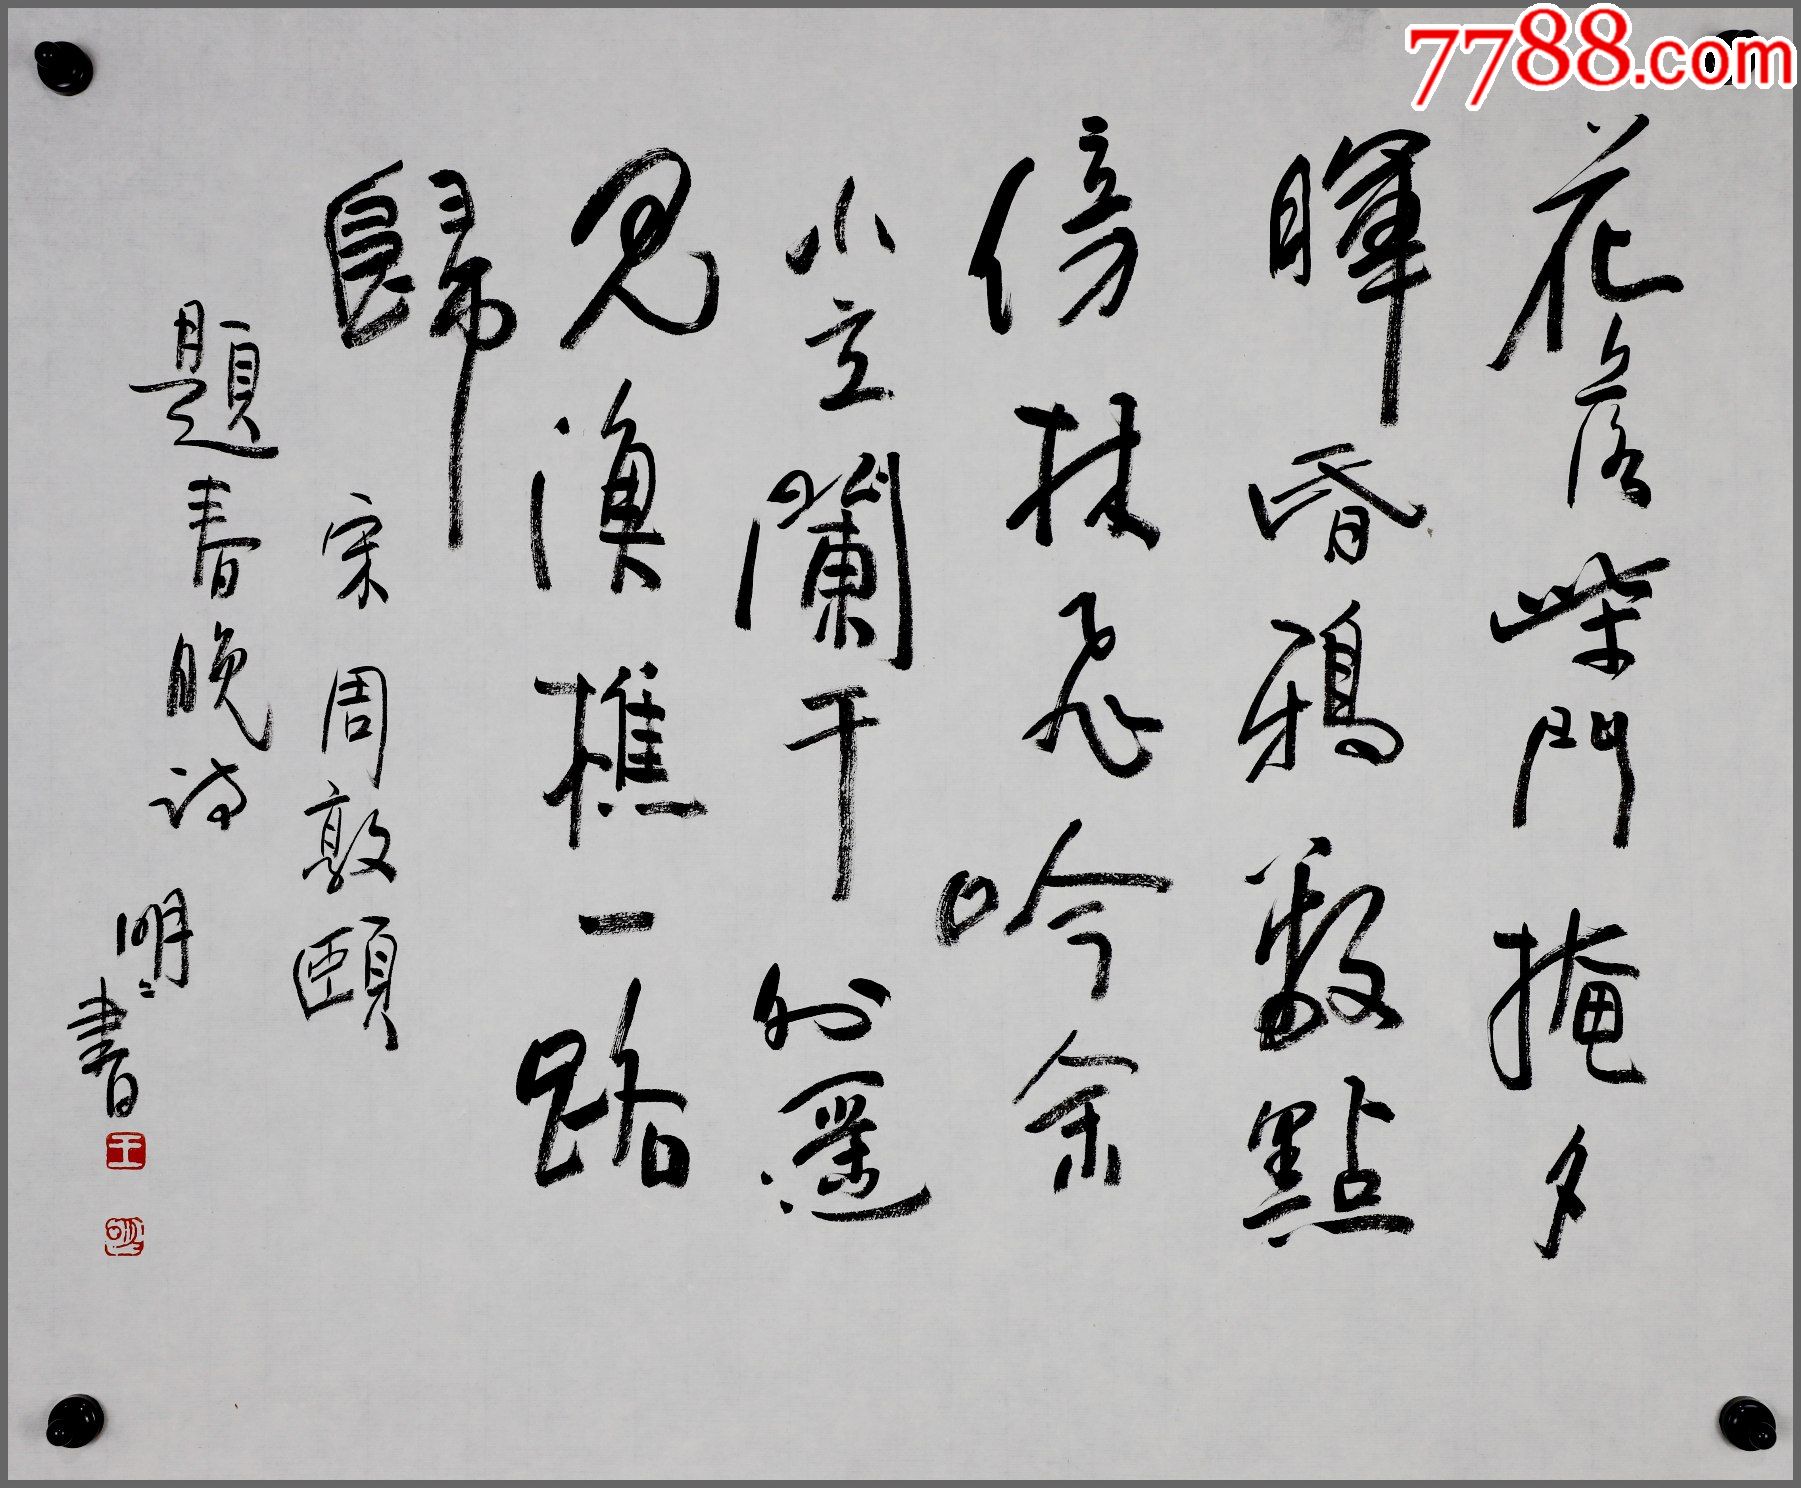 7788.com
花落柴門掩夕
暉昏鴉數點
傍林飛吟余
小立闌干外遥
見漁樵一路
歸
宋周敦頤
題春晚詩
明書
王
明